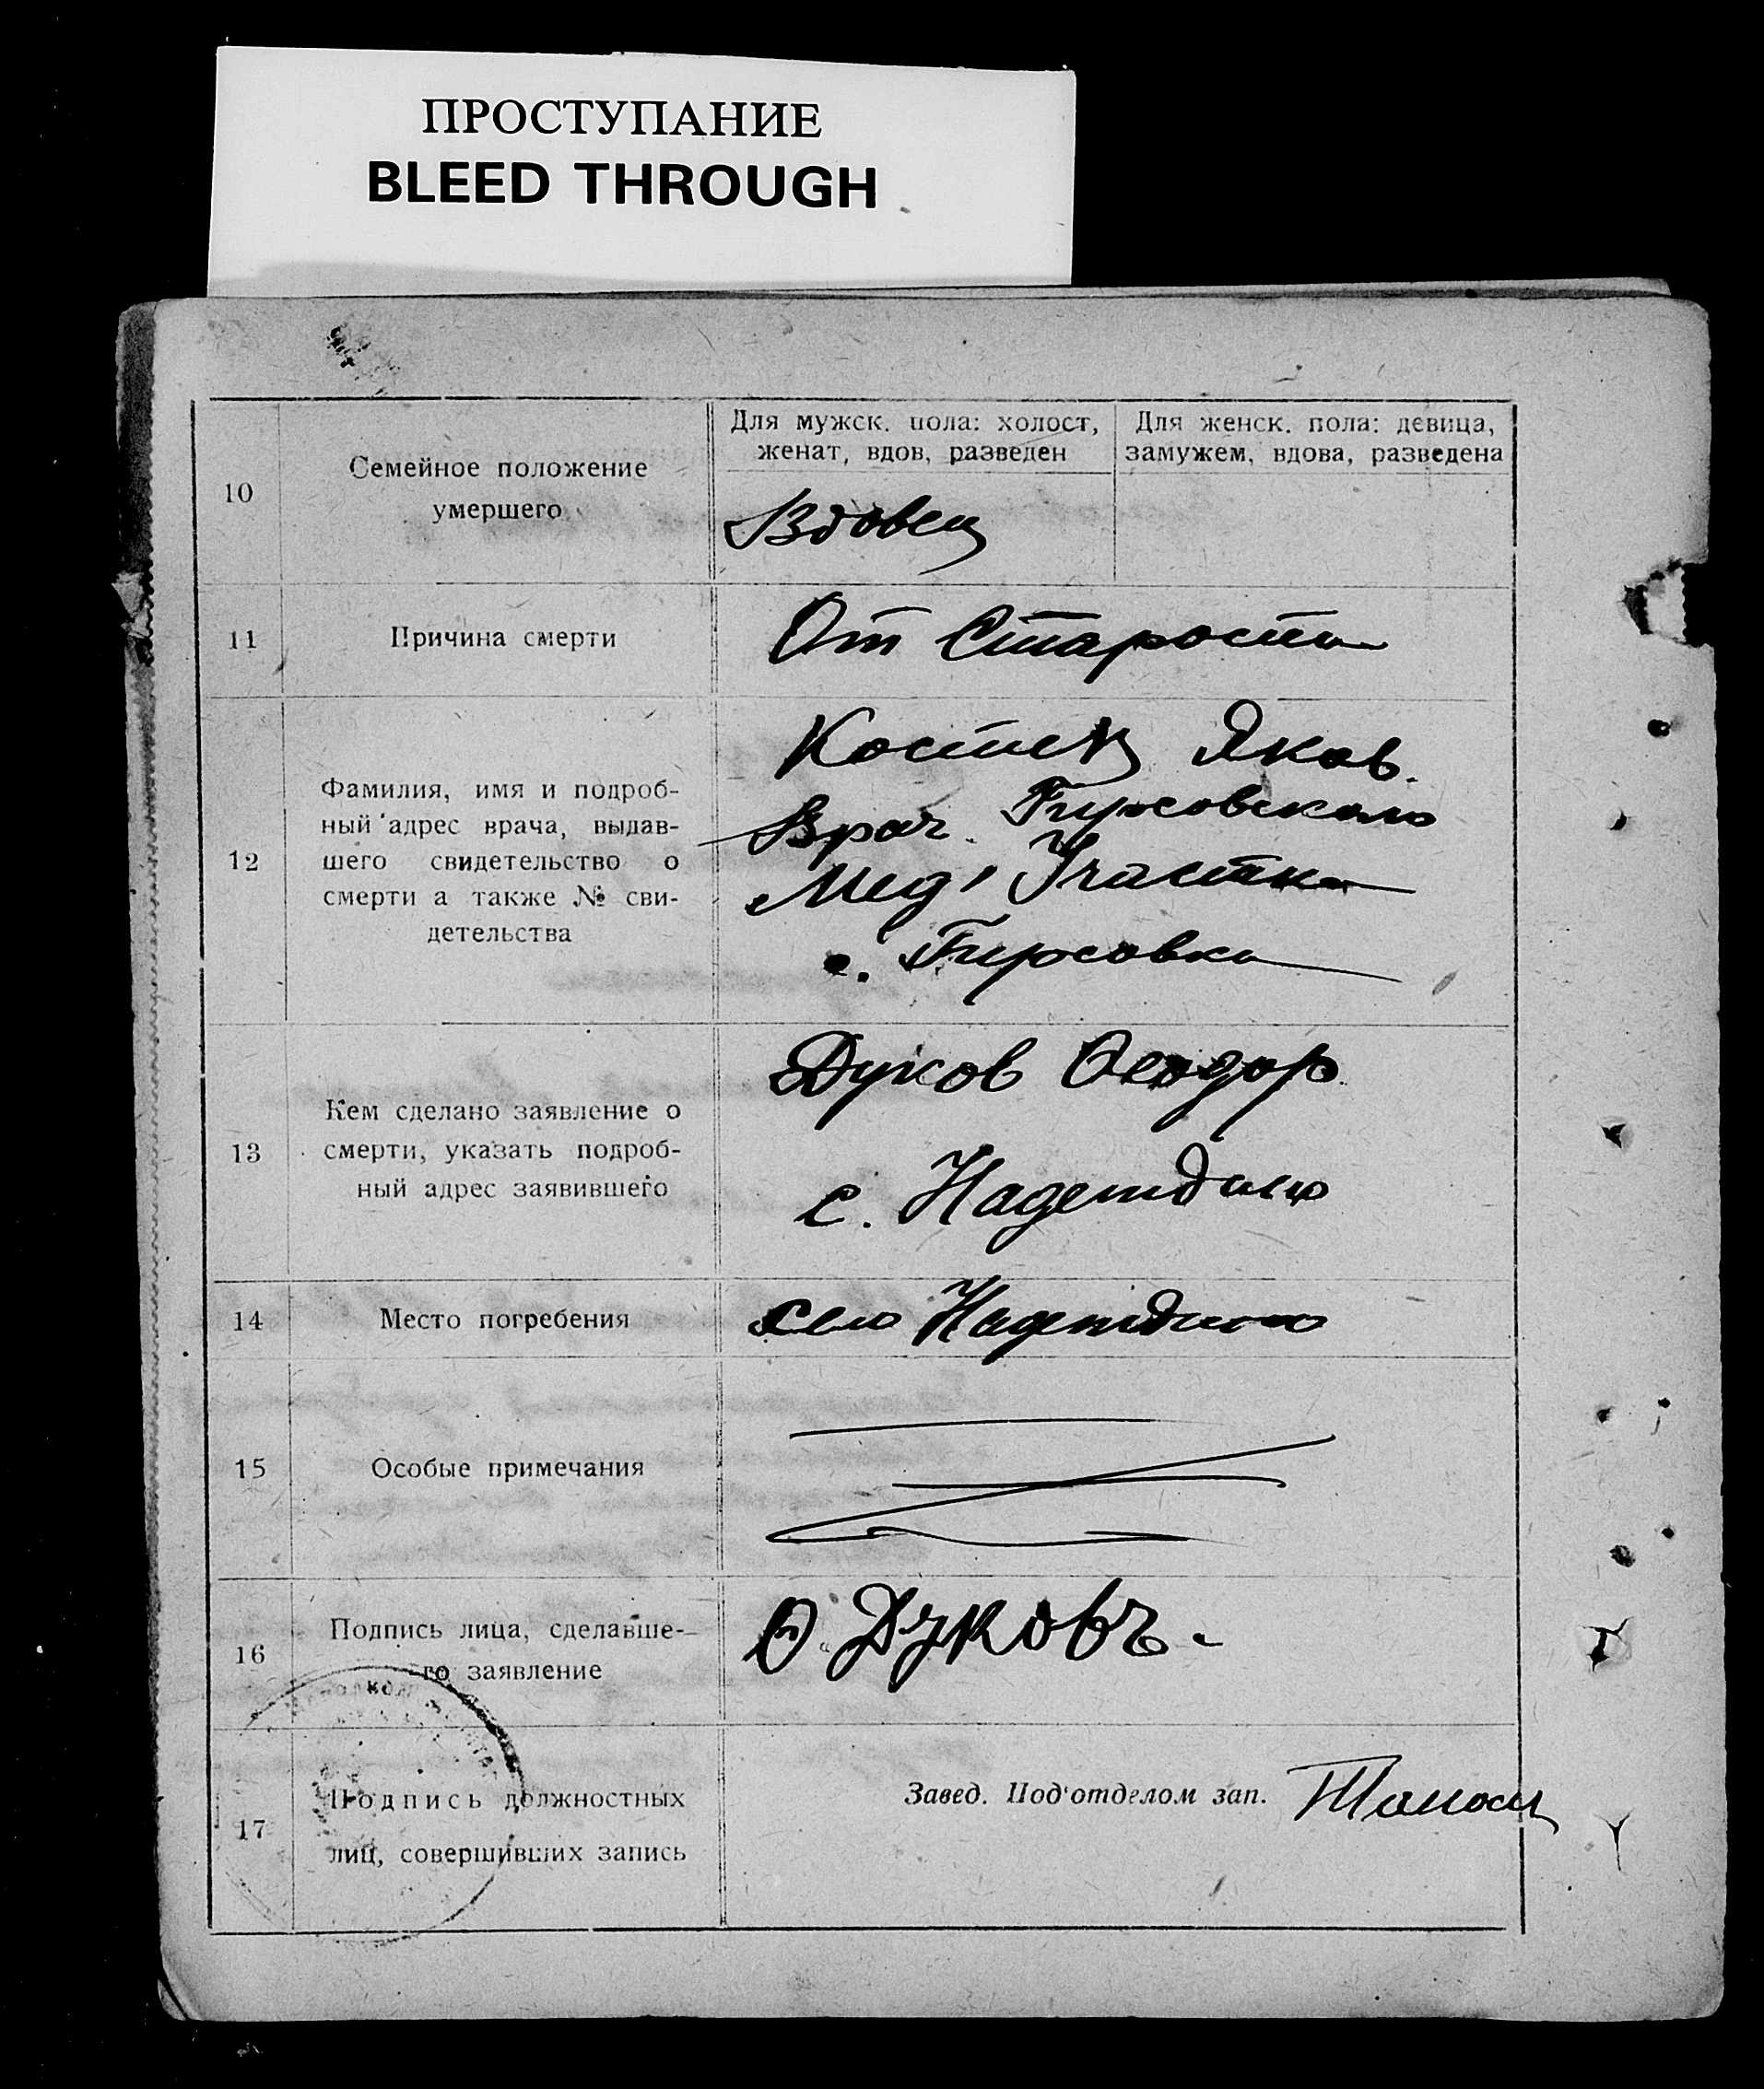 ПРОСТУПАНИЕ
BLEED THROUGH
Для мужск. пола: холост,
женат, вдов, разведен
Для женск. пола: девица,
замужем, вдова, разведена
10
Семейное положение
умершего
Вдовец
11
Причина смерти
От Старости
12
Фамилия, имя и подроб-
ный адрес врача, выдав-
шего свидетельство о
смерти а также № сви-
детельства
Яков.
Врач. Гирсовского
Мед. Участка
с. Гирсовка
13
Кем сделано заявление о
смерти, указать подроб-
ный адрес заявившего
Дуков Феодор
с. Надеждино
14
Место погребения
село Надеждино
15
Особые примечания
16
Подпись лица, сделавше-
го заявление
Ѳ. Дуковъ.
17
Подпись должностных
лиц, совершивших запись
Завед. Под'отделом зап.